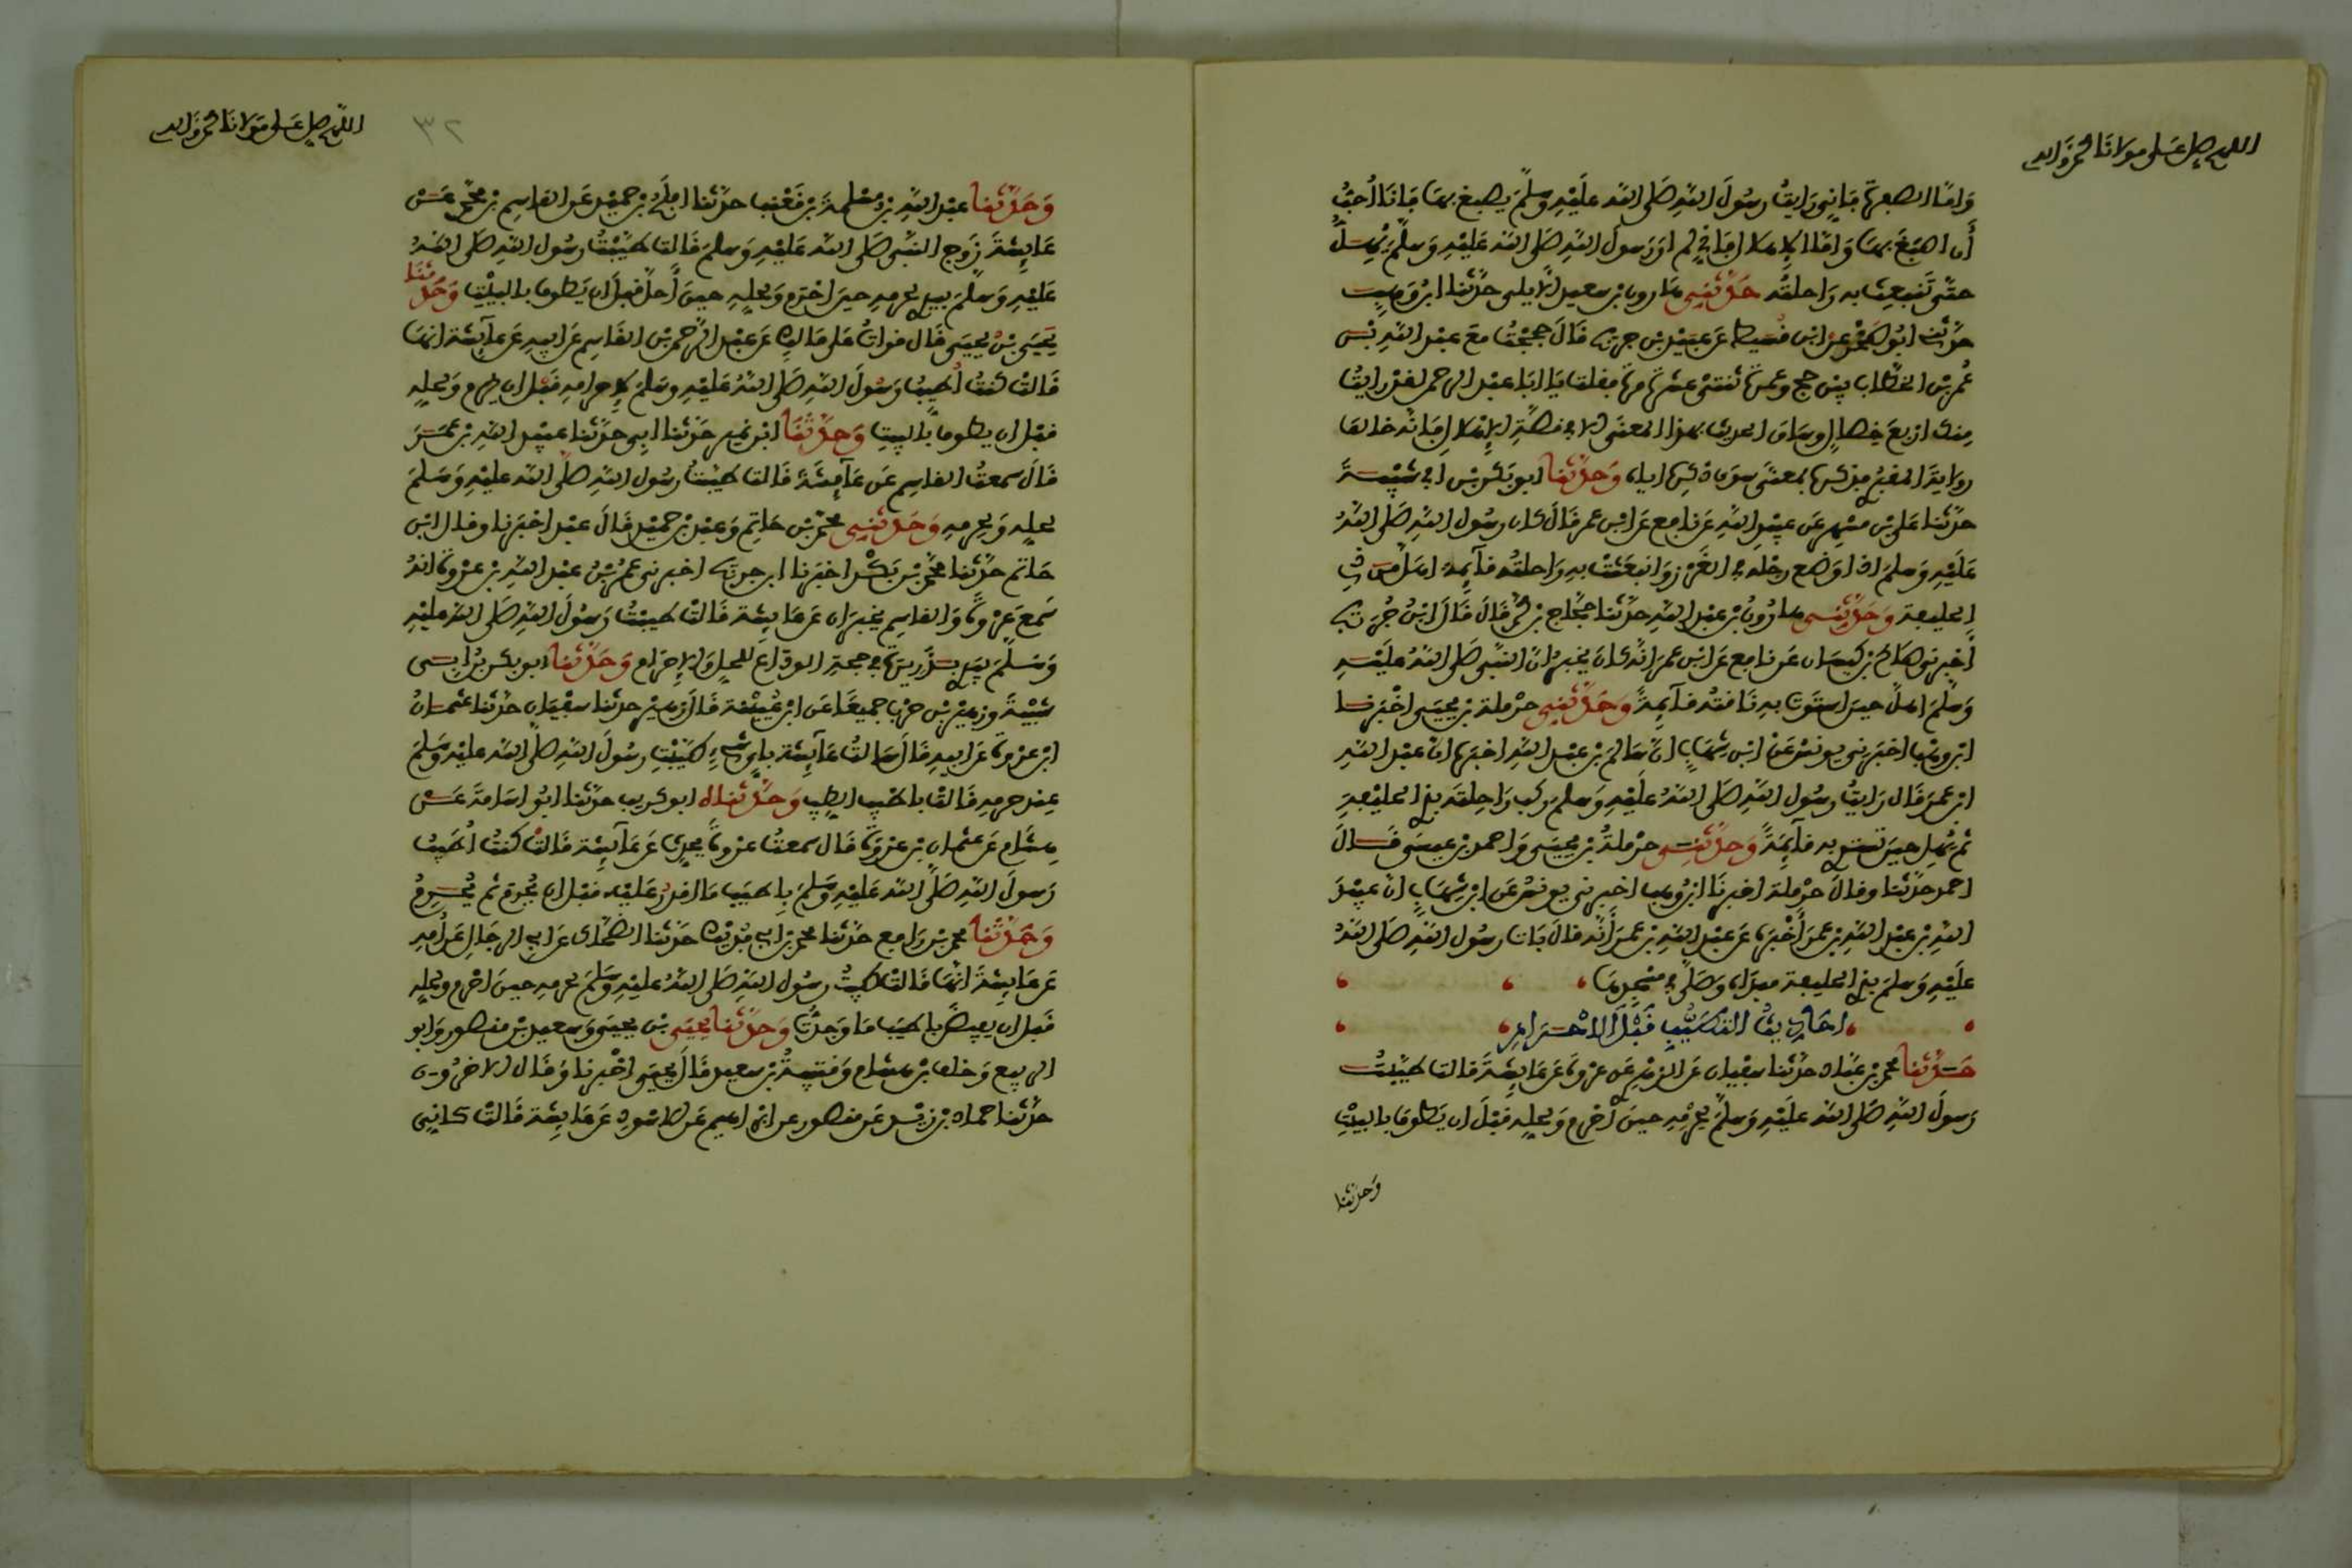 اللهم صل على مولانا محمد وآله
وَامّا الصفرة فإنِّي رَايتُ رسُولَ اللهِ صَلى الله عَلَيْهِ وسلمَ يصبغ بهَا فانَا أُحبُّ
أن اصبَغَ بهَا وَامّا الإهلال فإنِّي لم ارَ رَسولَ اللهِ صَلى الله عَلَيْهِ وَسلمَ يُهِلّ
حتّى تَنبعِث به رَاحلتُه حَدَّثَنِي هَارون بن سعيد الايلى حدّثنا ابن وَهب
حدّثنى ابُو صَخر عن ابن قُسَيط عَن عبَيْد بن جريج قالَ حججْتُ مَعَ عبْد اللهِ بْن
عُمر بْن الخطّاب بين حج وعمرة ثنتىْ عشرة مرة فقلت يَا ابَا عبْد الرحمن لقد رايتُ
منك اربعَ خِصالٍ وساق الحديث بهذا المعنَى إلا في قصّة الإهْلال فإنّه خالف
روَايَةَ المقبُري فذكرها بمعنَى سوَى ذكره اياه وَحَدّثنا ابو بَكر بْن ابي شيْبَة
حدّثنا عَلي بْن مسْهِر عَن عبَيْد اللهِ عَن نافِع عَن ابْن عمر قَالَ كان رسُول اللهِ صَلى اللهُ
عَلَيْهِ وَسلمَ اذا وَضع رجْله في الغَرْز وَانبعَثتْ بهِ رَاحلتُه قآيِمَة اهَلَّ من ذي
الحليفة وَحَدّثنِى هارُونُ بْن عبْد اللهِ حدّثنا حجّاج بْن محمد قَالَ قَالَ ابْنُ جُرَيج
أخبرنى صَالح بْن كيسَان عَن نافع عَن ابْن عمرَ انّه كان يخبرُ انّ النبّى صَلى اللهُ عَليْهِ
وَسلمَ اهلَّ حينَ استَوَت به ناقتُه قآيِمَةً وَحَدّثنِى حرْملة بْن يحيَى اخْبَرنا
ابن وهْب اخبَرنى يونسُ عَنْ ابْن شهَابٍ انّ سَالمَ بْن عبْد اللهِ اخبَرهُ انّ عبْد اللهِ
ابْن عمرَ قَال رَايتُ رسُول اللهِ صَلى اللهُ عَلَيْهِ وَسلمَ ركب رَاحِلتَه بذي الحليْفةِ
ثم يُهِل حينَ تستوي به قآيِمَةً وَحدّثنِى حرْملةُ بْن يحيَى وَاحمد بْن عيسَى قَالَ
احمد حدّثنا وقالَ حرْملة اخبرنَا ابْنُ وهب اخبرنى يونسُ عَن ابْن شهَابٍ انّ عبَيْدَ
اللهِ بْن عبْد اللهِ بْن عمرَ أخْبَرهُ عَن عبْد اللهِ بْن عمرَ أنّه قالَ بَاتَ رسُول اللهِ صَلى اللهُ
عَلَيْهِ وَسلمَ بذي الحليفة مبدَأه وَصَلَّى في مسْجدِهَا
احَاديثُ التطَيُّبِ قَبْلَ الاحْرَامِ
حَدّثنا محمد بْن عَبّاد حدّثنا سفْيان عَن الزهْري عَن عرْوةَ عَن عَايِشةَ قَالت طيّبْتُ
رَسولَ اللهِ صَلى الله عَليْهِ وَسلمَ لحُرْمِهِ حينَ أحْرم وَلحلِّهِ قبْلَ ان يَطوفَ بالبيْتِ
وَحدّثنا
اللهم صل على مولانا محمد وآله
٣٢
وَحَدّثنا عبْد اللهِ بْن مسْلمةَ بْن قَعْنب حدّثنا افلَحُ بْن حميْد عَن القاسِم بْن محمد عَنْ
عَايشَةَ زَوجِ النبّى صَلى الله عَلَيْهِ وَسلمَ قَالت طيّبْتُ رسُول اللهِ صَلى اللهُ
عَلَيْهِ وَسلمَ بيدي لحرمِهِ حينَ احْرم وَلحلِّهِ حينَ أحلّ قبل أن يَطوف بالبيْت وَحَدّثنَا
يَحيَى بْنُ يحيَى قَال قرات عَلى مَالِك عَن عبْد الرّحمن بْن القاسِم عَن ابيهِ عَن عآيشَة انهَا
قَالتْ كنتُ أطيّبُ رَسُولَ اللهِ صَلى اللهُ عَلَيْهِ وسَلمَ لإحرامهِ قَبْل ان يحرم وَلحلِّهِ
قبْل ان يطوف بالبيت وَحَدّثنَا ابْن نمير حدّثنا ابي حدّثنا عبَيْد اللهِ بْن عمَرَ
قالَ سمعتُ القاسِم عَن عَآيِشَةَ قَالت طيّبْتُ رسُول اللهِ صَلى الله عليْهِ وَسَلمَ
لحلِّه وَلحرمِهِ وَحَدّثنِى محمد بْن حَاتِم وَعبْد بْن حميْد قَالَ عبْد اخبَرنا وقال ابْن
حَاتم حدّثنا محمد بْن بَكْر اخبَرنا ابن جريج اخبرنى عمرُ بْنُ عبْد اللهِ بْن عرْوةَ انهُ
سَمعَ عرْوةَ وَالقاسِم يخبرَان عَن عَايشَة قَالتْ طيّبْتُ رَسُولَ اللهِ صَلى الله عليْهِ
وَسَلّمَ بيدي بذَريرة في حجةِ الودَاع للحلّ وَالإحْرَام وَحَدّثنا ابو بكر بْن ابى
شيْبَةَ وَزهيْر بْن حرْب جميعًا عَن ابْن عُيَيْنة قَالَ زهيْر حدثنا سفْيَان حدّثنا عثمان
ابْن عرْوة عَن ابيهِ قَالَ سَالتُ عَآيشَة باي شيْء طَيّبْتِ رسُولَ اللهِ صَلى الله عليْهِ وَسَلمَ
عند حرمِهِ قَالتْ باطْيب الطيب وَحَدّثناه ابو كريب حدّثنا ابُو اسَامةَ عَنْ
هشام عَن عثمان بْن عرْوَة قَال سمعتُ عرْوةَ يحدث عَن عَآيشَة قَالتْ كنتُ أطَيّبُ
رَسولَ اللهِ صَلى الله عَلَيْهِ وَسَلمَ بِاطيب مَا اقدِرُ عَليْه قبْل ان يُحْرم ثم يُحْرِمُ
وَحَدّثنَا محمد بْن رَافع حدّثنا محمد بْن ابي فدَيْك حَدّثنا الضحّاك عَن ابي الرجَالِ عَن أمّهِ
عَن عَايشَةَ انهَا قَالت طيّبْتُ رسُول اللهِ صَلى اللهُ عليْهِ وَسَلمَ لحرمِهِ حينَ احْرم ولحلِّهِ
قَبل ان يفيضَ باطيَب مَا وَجدْتُ وَحَدّثنا يحيَى بْن يحيى وَسعيد بْن منصور وَابو
الربيع وَخلف بْن هشام وَقتيبةُ بْن سعيد قَالَ يحيَى اخْبرنا وَقَال الاخرُونَ
حدّثنا حماد بْن زيْد عَن منصور عن ابرَاهيم عَن الاسْودِ عَن عَايشَة قَالتْ كأنّى